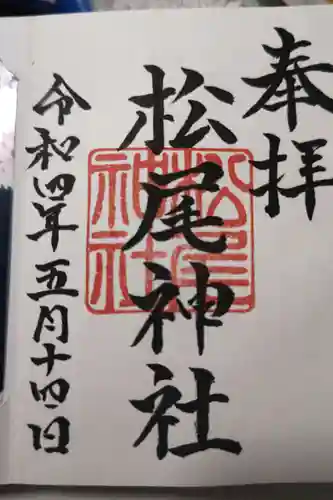 奉拝
松尾神社
松尾
神社
令和四年五月十四日